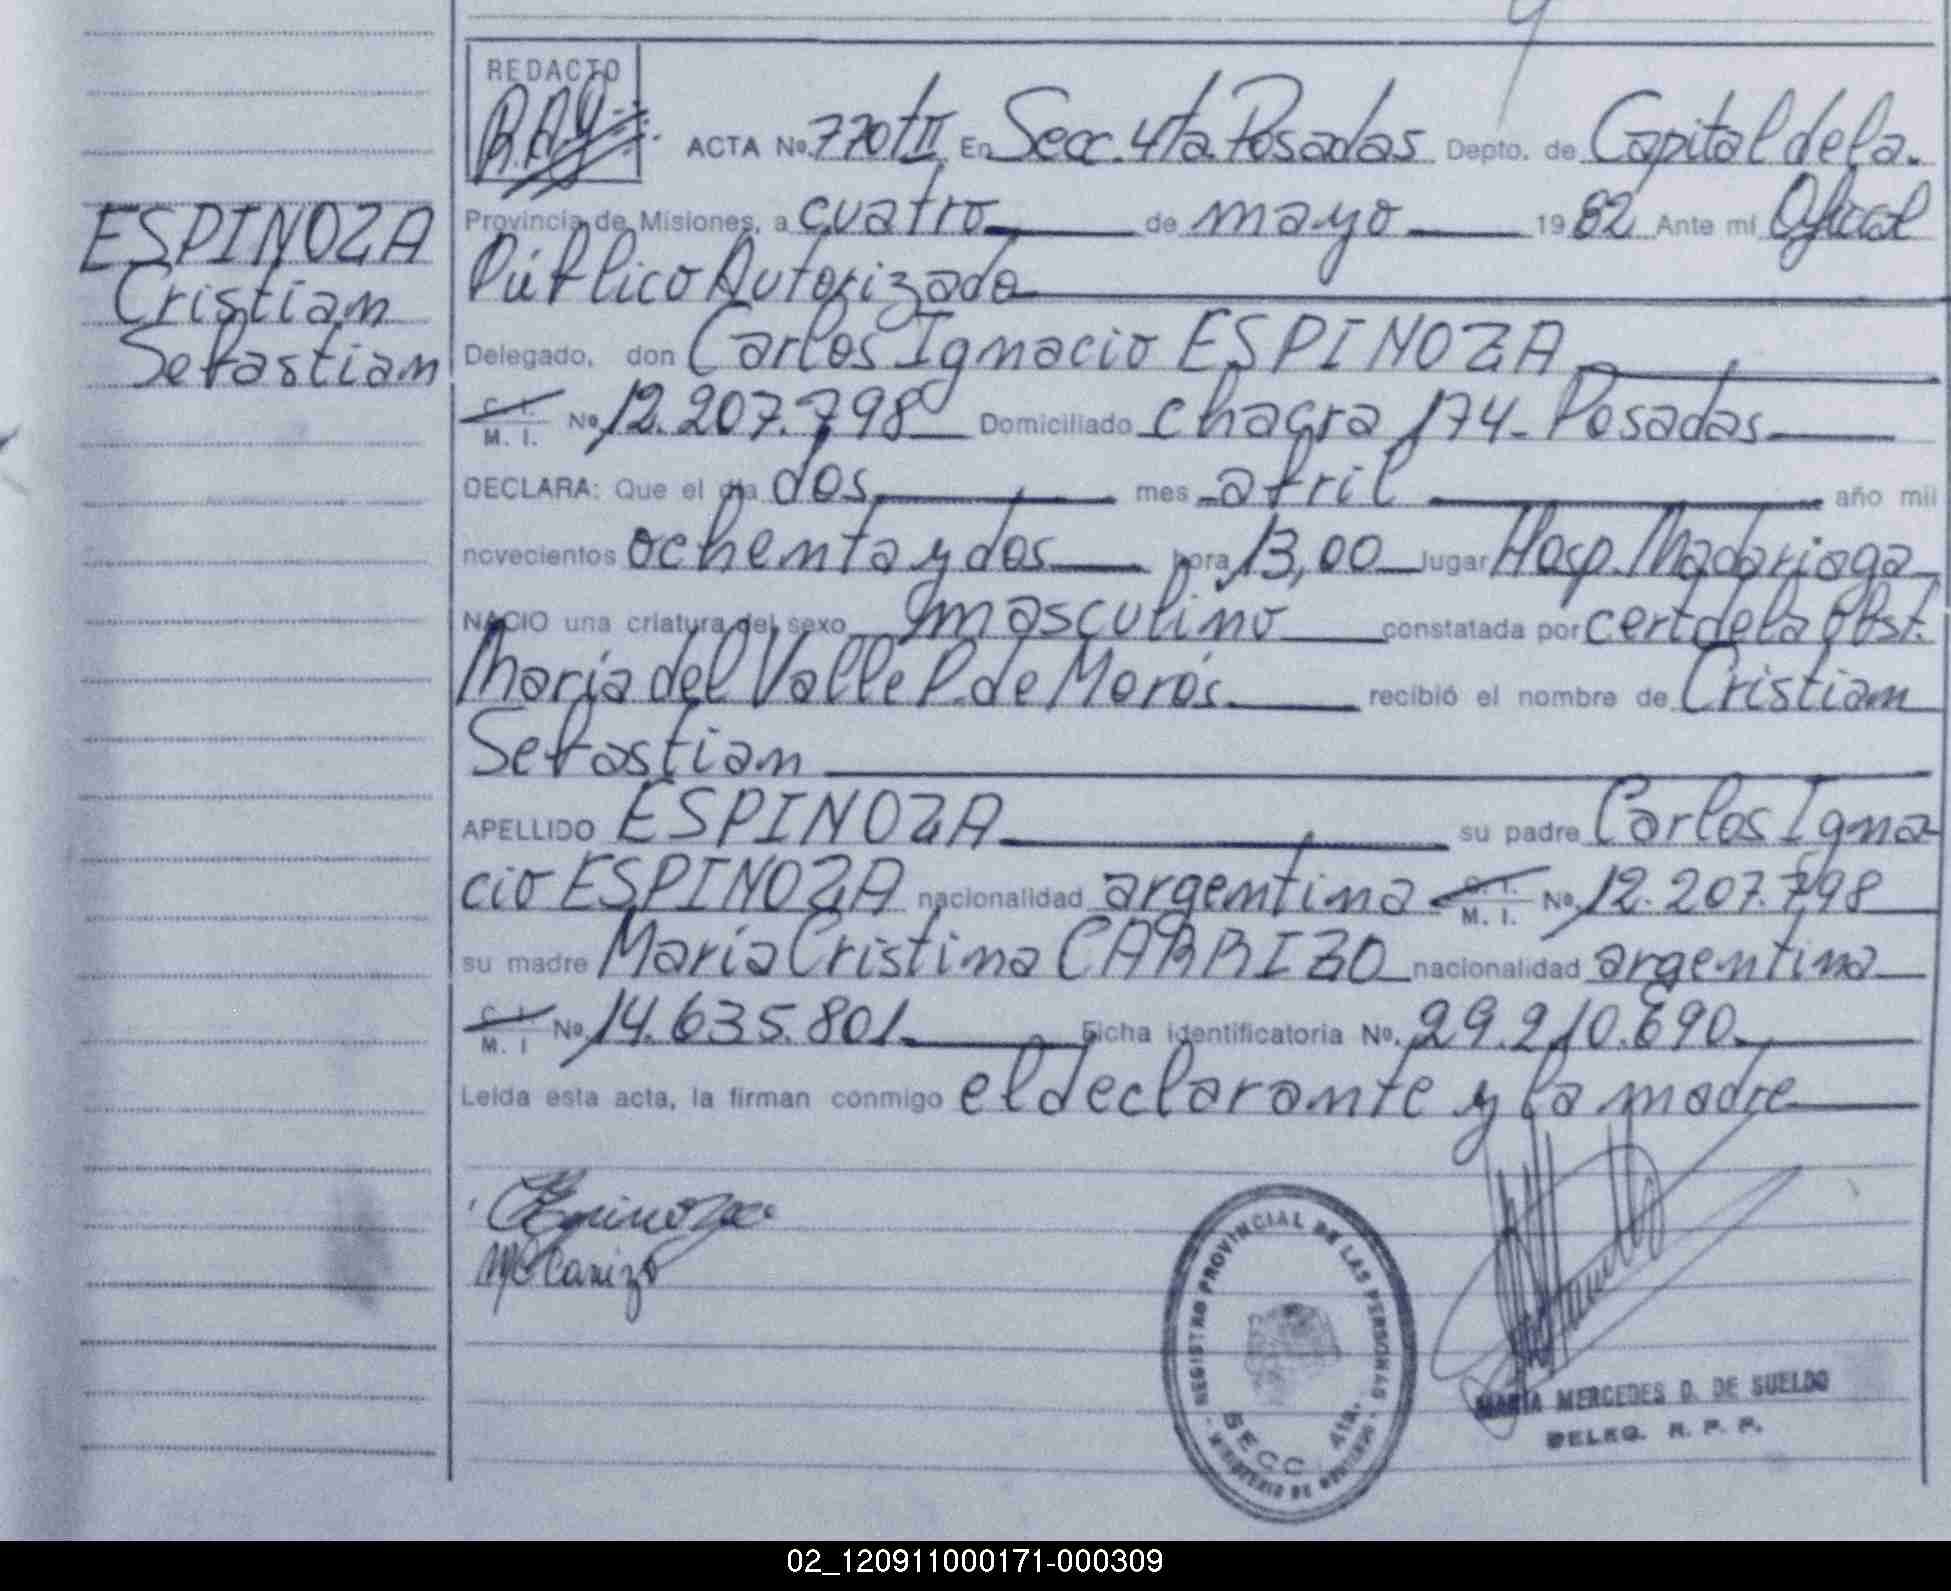 REDACTO
R.A.G.
ACTA Nº 770 tII En Secc. 4ta. Posadas Depto. de Capital de la
Provincia de Misiones, a cuatro de mayo 1982 Ante mi Oficial
Público Autorizado
ESPINOZA
Cristian
Sebastian
Delegado, don Carlos Ignacio ESPINOZA
C. I.
M. I. Nº 12.207.798 Domiciliado chacra 174- Posadas
DECLARA: Que el día dos mes abril año mil
novecientos ochenta y dos hora 13,00 lugar Hosp. Madariaga
NACIO una criatura del sexo masculino constatada por cert de la obst.
María del Valle P. de Morós recibió el nombre de Cristian
Sebastian
APELLIDO ESPINOZA su padre Carlos Igna
cio ESPINOZA nacionalidad argentina C. I.
M. I. Nº 12.207.798
su madre María Cristina CARRIZO nacionalidad argentina
C. I.
M. I Nº 14.635.801 Ficha identificatoria Nº 29.210.690
Leída esta acta, la firman conmigo el declarante y la madre
CEspinoza
MCCarrizo
REGISTRO PROVINCIAL DE LAS PERSONAS
SECC. 4ta.
MINISTERIO DE GOBIERNO
MARIA MERCEDES D. DE SUELDO
DELEG. R. P. P.
02_120911000171-000309